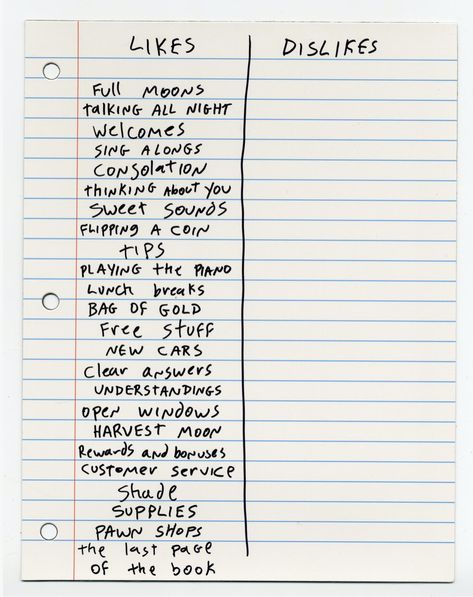 LIKES
DISLIKES
Full MOONS
talking ALL NIGHT
Welcomes
SING ALONGS
CONSOLATION
thinking About you
Sweet Sounds
FLIPPING A COIN
TIPS
PLAYING the PIANO
Lunch breaks
BAG OF GOLD
Free Stuff
NEW CARS
Clear answers
UNDERSTANDINGS
open WINDOWS
HARVEST MOON
Rewards and bonuses
Customer service
Shade
SUPPLIES
PAWN SHOPS
the last page
of the book